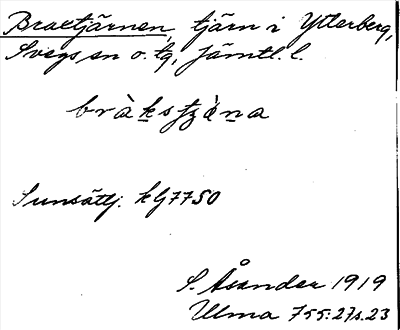 Braxtjärnen, tjärn i Ytterberg,
Svegs sn o. tg, Jämtl. l.
bràkstzèna
Sunsätlj. kG7750
S. Åsander 1919
Ulma 755:27s.23